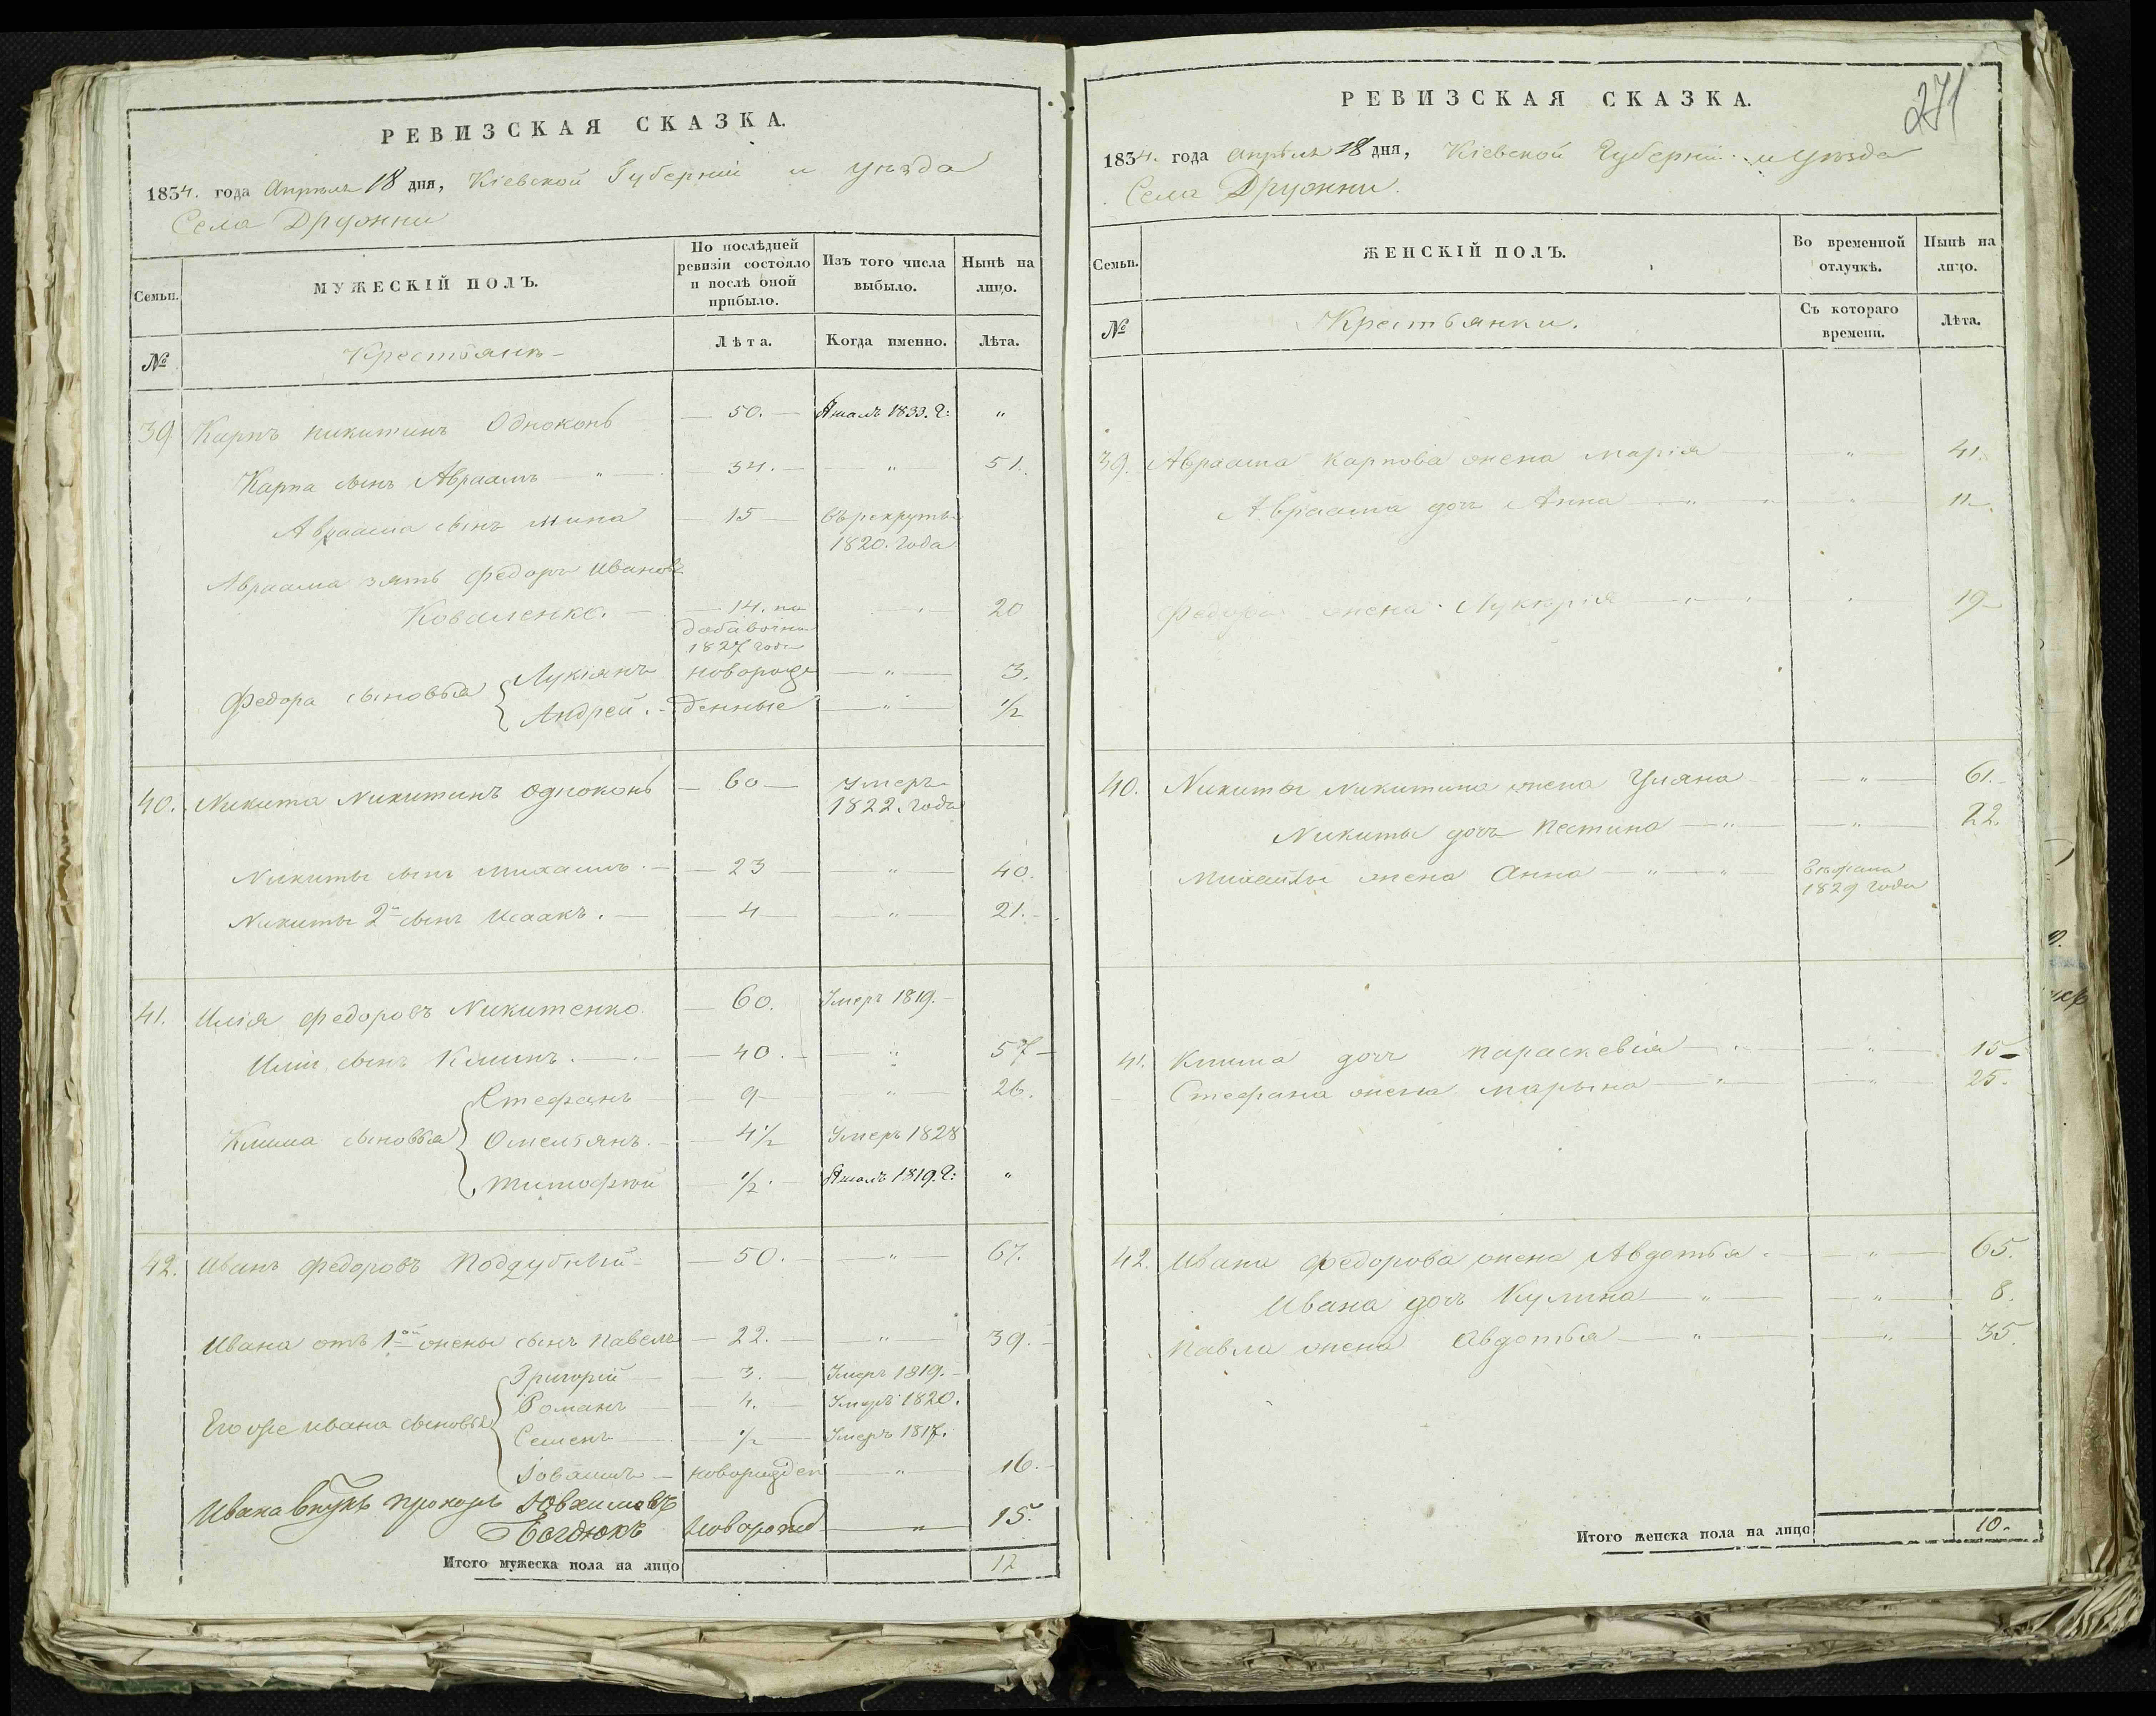 РЕВИЗСКАЯ СКАЗКА.
1834. года Апрѣля 18 дня, Кіевской Губерніи и уѣзда
Села Дружни
Семьи.
МУЖЕСКІЙ ПОЛЪ.
По послѣдней ревизіи состояло и послѣ оной прибыло.
Изъ того числа выбыло.
Нынѣ на лицо.
№
Крестьянъ
Лѣта.
Когда именно.
Лѣта.
39 Карпъ Никитинъ Одноконь — 50. — 1833. г: "
Карпа сынъ Авраамъ — " — 34. — " 51.
Авраама сынъ Мина — 15 — Въ рекруты
1820. года
Авраама зять Федоръ Ивановъ
Коваленко. — 14. по — " — 20
добавочн
1827 года
Федора сыновья { Лукіянъ новорож — " — 3.
Андрей. денные — " — 1/2
40. Никита Никитинъ Одноконь — 60 — Умеръ
1822. года
Никиты сынъ Михаилъ. — 23 — " 40.
Никиты 2й сынъ Исаакъ. — 4 " 21.
41. Илія Федоровъ Никитенко. — 60. Умеръ 1819. —
Иліи сынъ Климъ. — 40. — " 57 —
Клима сыновья { Стефанъ — 9 — " 26.
Омельянъ. — 4 1/2 Умеръ 1828
Тимофѣй — 1/2. — 1819. г: "
42. Иванъ Федоровъ Поддубный — 50. — " — 67.
Ивана отъ 1ой жены сынъ Павелъ — 22. — " 39. —
Его же Ивана сыновья { Григорій — 3. — Умеръ 1819. —
Романъ — 4. — Умеръ 1820.
Семенъ — 1/2 — Умеръ 1817.
— новорожден — " — 16. —
Ивана внукъ Прокопъ Ювхимовъ
новорожд — " — 15.
Итого мужеска пола на лицо 12
271
РЕВИЗСКАЯ СКАЗКА.
1834. года Апрѣля 18 дня, Кіевской Губерніи и уѣзда
Села Дружни.
Семьи.
ЖЕНСКІЙ ПОЛЪ.
Во временной отлучкѣ.
Нынѣ на лицо.
№
Крестьянки.
Съ котораго времени.
Лѣта.
39. Авраама Карпова жена Марія — " — 41.
Авраама дочь Анна — " — " 11.
Федора жена Лукерія — " — " 19 —
40. Никиты Никитина жена Уляна — " — 61. —
Никиты дочь — " — " — 22.
Михайлы жена Анна — " — " —
1829 года
41. Клима дочь Параскевія — " — " 15 —
Стефана жена Марьяна — " — " 25.
42. Ивана Федорова жена Авдотья. — " — 65.
Ивана дочь Кулина — " — " — 8.
Павла жена Авдотья — " — " — 35.
Итого женска пола на лицо 10.